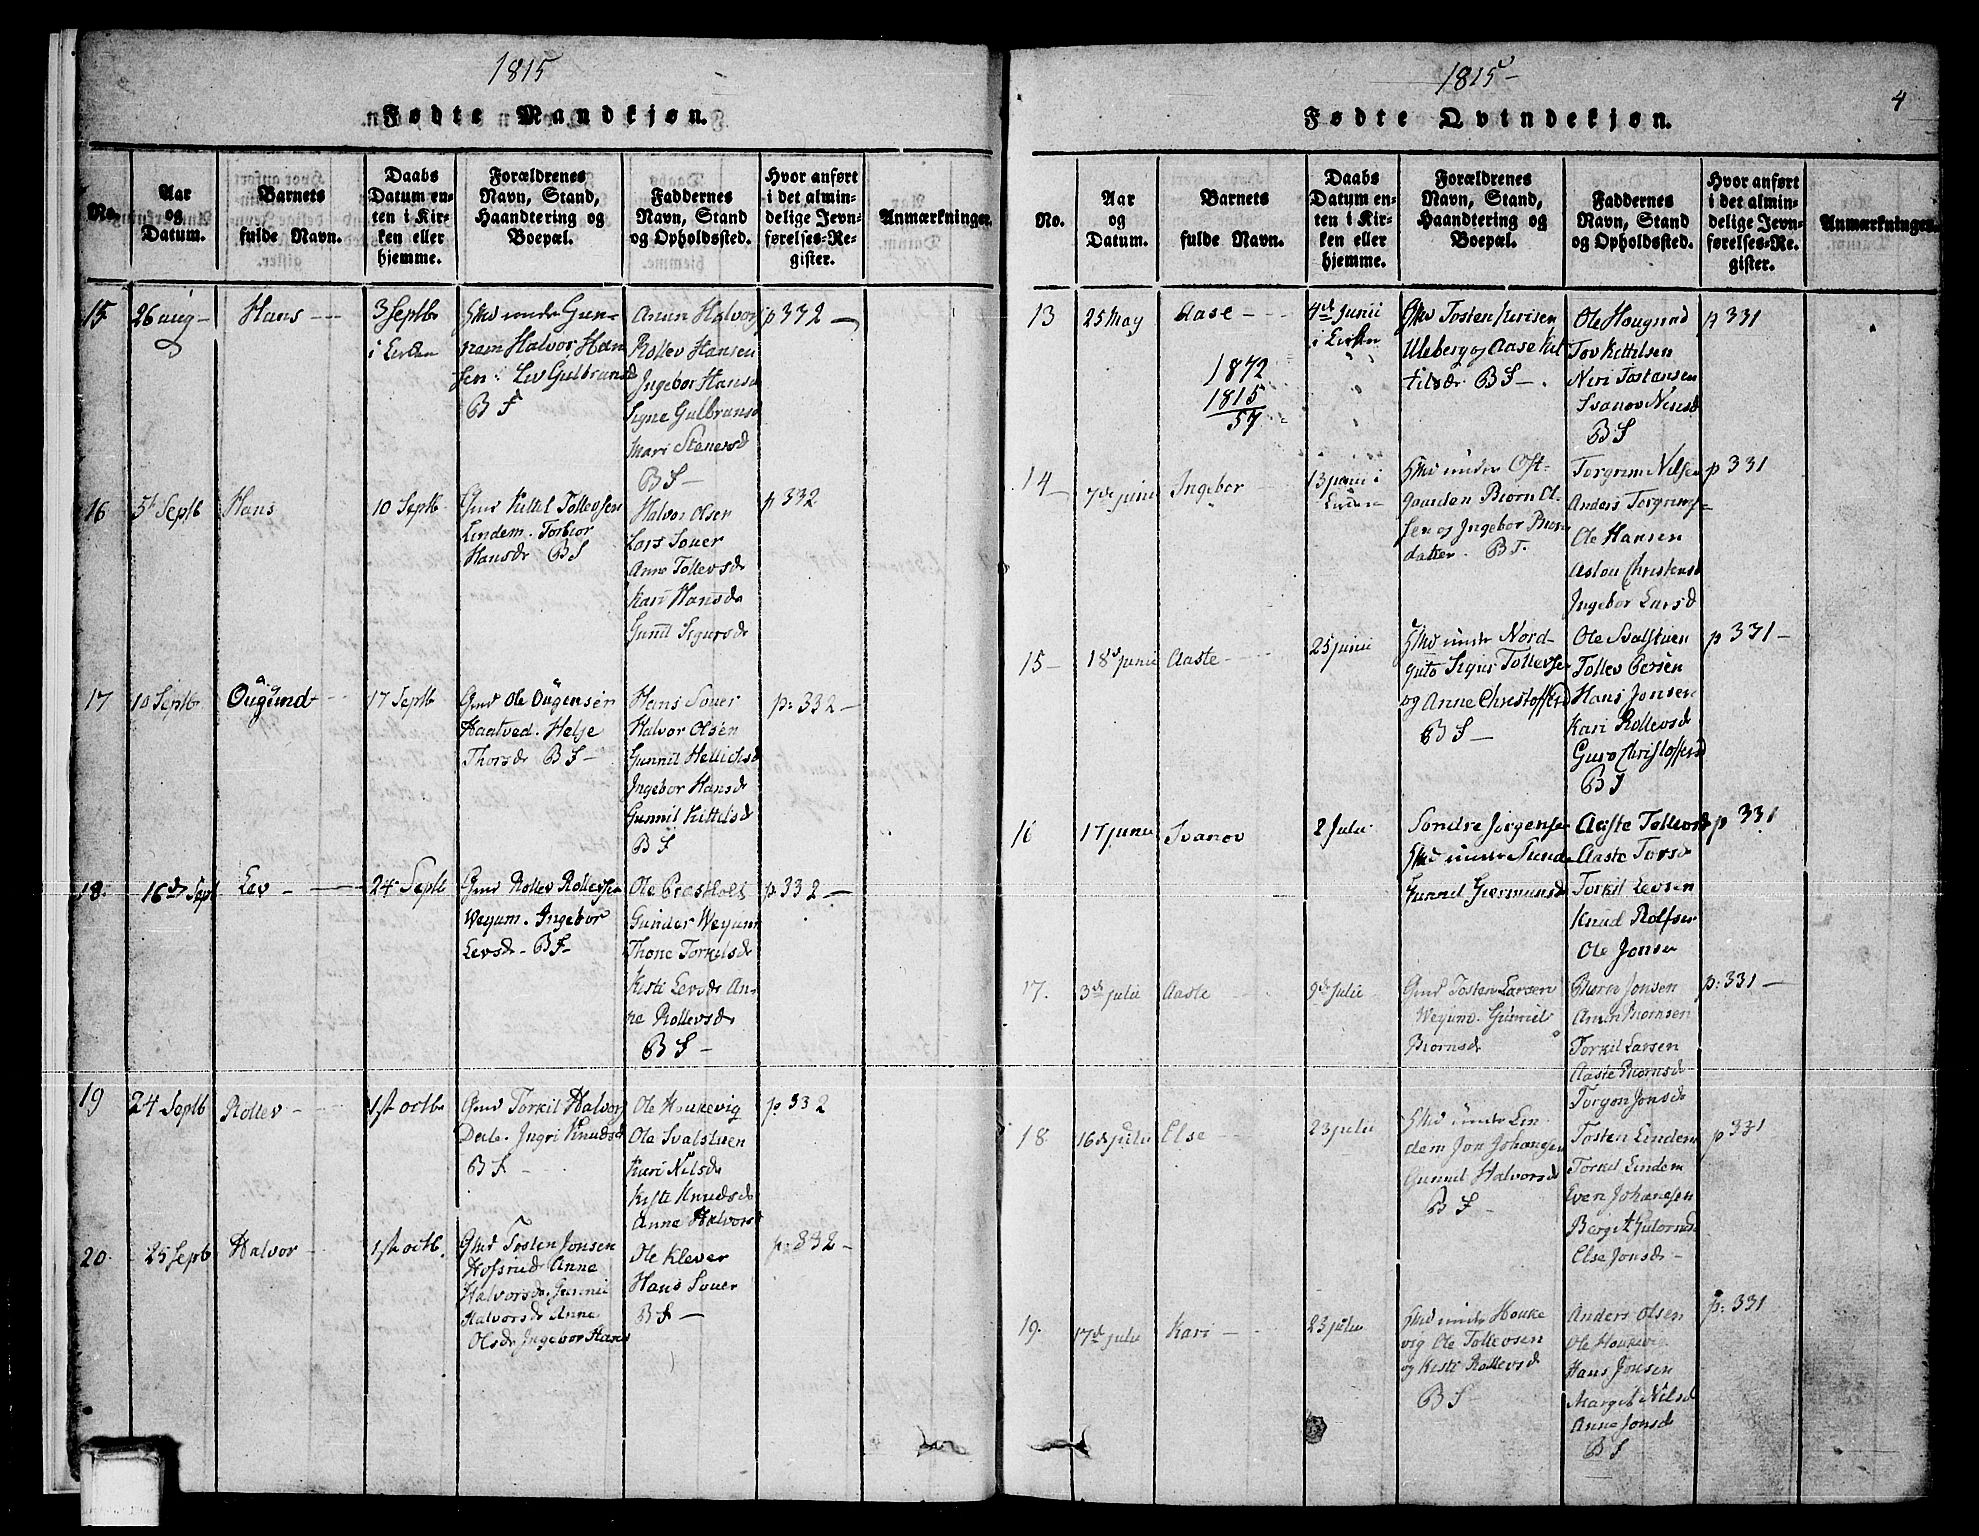 1815
Fødte Mandkjøn.
No.
Aar
og
Datum.
Barnets
fulde Navn.
Daabs
Datum en-
ten i Kir-
ken eller
hjemme.
Forældrenes
Navn, Stand,
Haandtering og
Boepæl.
Faddernes
Navn, Stand
og Opholdssted.
Hvor anført
i det almin-
delige Jevn-
førelses-Re-
gister.
Anmærkninger.
15
26 aug
Hans
3 Septb
Halvor Han
sen. Lev Gulbrands
B F
Amun Halvors
Rollev Hansen
Ingebor Hansd
Signe Gulbransd
Mari Stenersd
B F
p 332
16
5t Septb
Hans
10 Septb
Gmd Kittil Tollevsen
Lindem. Torbior
Hansdr B F
Halvor Olsen
Lars Souer
Anne Tollevsdr
Kari Hansdr
Gunil Sigursdr
p 332
17
10 Septb
Ougund
17 Septb
Gmd Ole Ougensen
Haatved. Helje
Thorsdr B F
Hans Souer
Halvor Olsen
Gunnil Hellichsd
Ingebor Hansd
Gunnil Kittilsd
B F
p: 332
18.
16de Sept
Lev
24 Septb
Gmd Rollev Rollevsen
Weyum. Ingebor
Levsdr B F
Ole Præsholt
Gunder Weyum
Thone Torkilsdr
Kisti Levsdr An-
ne Rollevsdr
B F
p: 332
19
24 Septb
Rollev
1st octb
Gmd Torkil Halvors
Dale. Ingri Knudsd
B F
Ole Houkevig
Ole Svalstuen
Kari Nilsdr
Kisti Knudsdr
Anne Halvorsd
p 332
20
25 Septb
Halvor
1st octb.
Gmd Tosten Jonsen
Hofsrud Anne
Halvorsdr. Gunnil
Halvorsdr Anne
Olsdr Ingebor Hans
Ole Klever
Hans Souer
B F
p: 332
1815
4
Fødte Qvindekjøn.
No.
Aar
og
Datum.
Barnets
fulde Navn.
Daabs
Datum en-
ten i Kir-
ken eller
hjemme.
Forældrenes
Navn, Stand,
Haandtering og
Boepæl.
Faddernes
Navn, Stand
og Opholdssted.
Hvor anført
i det almin-
delige Jevn-
førelses-Re-
gister.
Anmærkninger.
13
25 May
Aase
1872
1815
57
4de Junii
i Kirken
Tosten
Uleberg og Aase Kit
tilsdr B F
Ole Hougrud
Tov Kittilsen
Niri Tostansen
Svanov Nirisd
B F
p 331
14
7de junii
Ingebor
13 junii i
Kirken
Hmd under Øst-
gaarden Biørn Ol
sen og Ingebor
datter. B F.
Torgrim Nilsen
Anders Torgrims
Ole Hansen
Aslou Christensd
Ingebor Larsd
p 331
15
18de junii
Aaste
25 junii
Hmd under Nord-
guto Sigur Tollevsen
og Anne Christoffersd
B F
Ole Svalstuen
Tollev Persen
Hans Jonsen
Kari Rollevsdr
Guro Christoffersd
B F
p 331
16
17 junii
Svanov
2 Julii
Sondre Jorgensen
Hmd under
Gunnil Giermunsd
Aaste Tollevsd
Aaste Torsd
Torkil Levsen
Knud Rolfsen
Ole Jonsen
p 331
17.
3de julii
Aaste
9de julii
Gmd Tosten Larsen
Weyum. Gunnil
Biornsdr
Biorn Jonsen
Amun Biornsen
Torkil Larsen
Aaste Biornsd
Torgon Jonsdr
p: 331
18
16de julii
Else
23 julii
Hmd under Lin
dem Jon Johansen
Gunnil Halvorsd
B F
Tosten Lindem
Torkil Lindem
Even Johansen
Bergit Gutormsd
Else Jonsdr
p 331
19.
17de julii
Kari
23 julii
Hmd under Houke
vig Ole Tollevsen
og Kisti Rollevsd
B F
Anders Olsen
Ole Houkevig
Hans Jonsen
Margit Nilsd
Anne Jonsdr
B F
p: 331